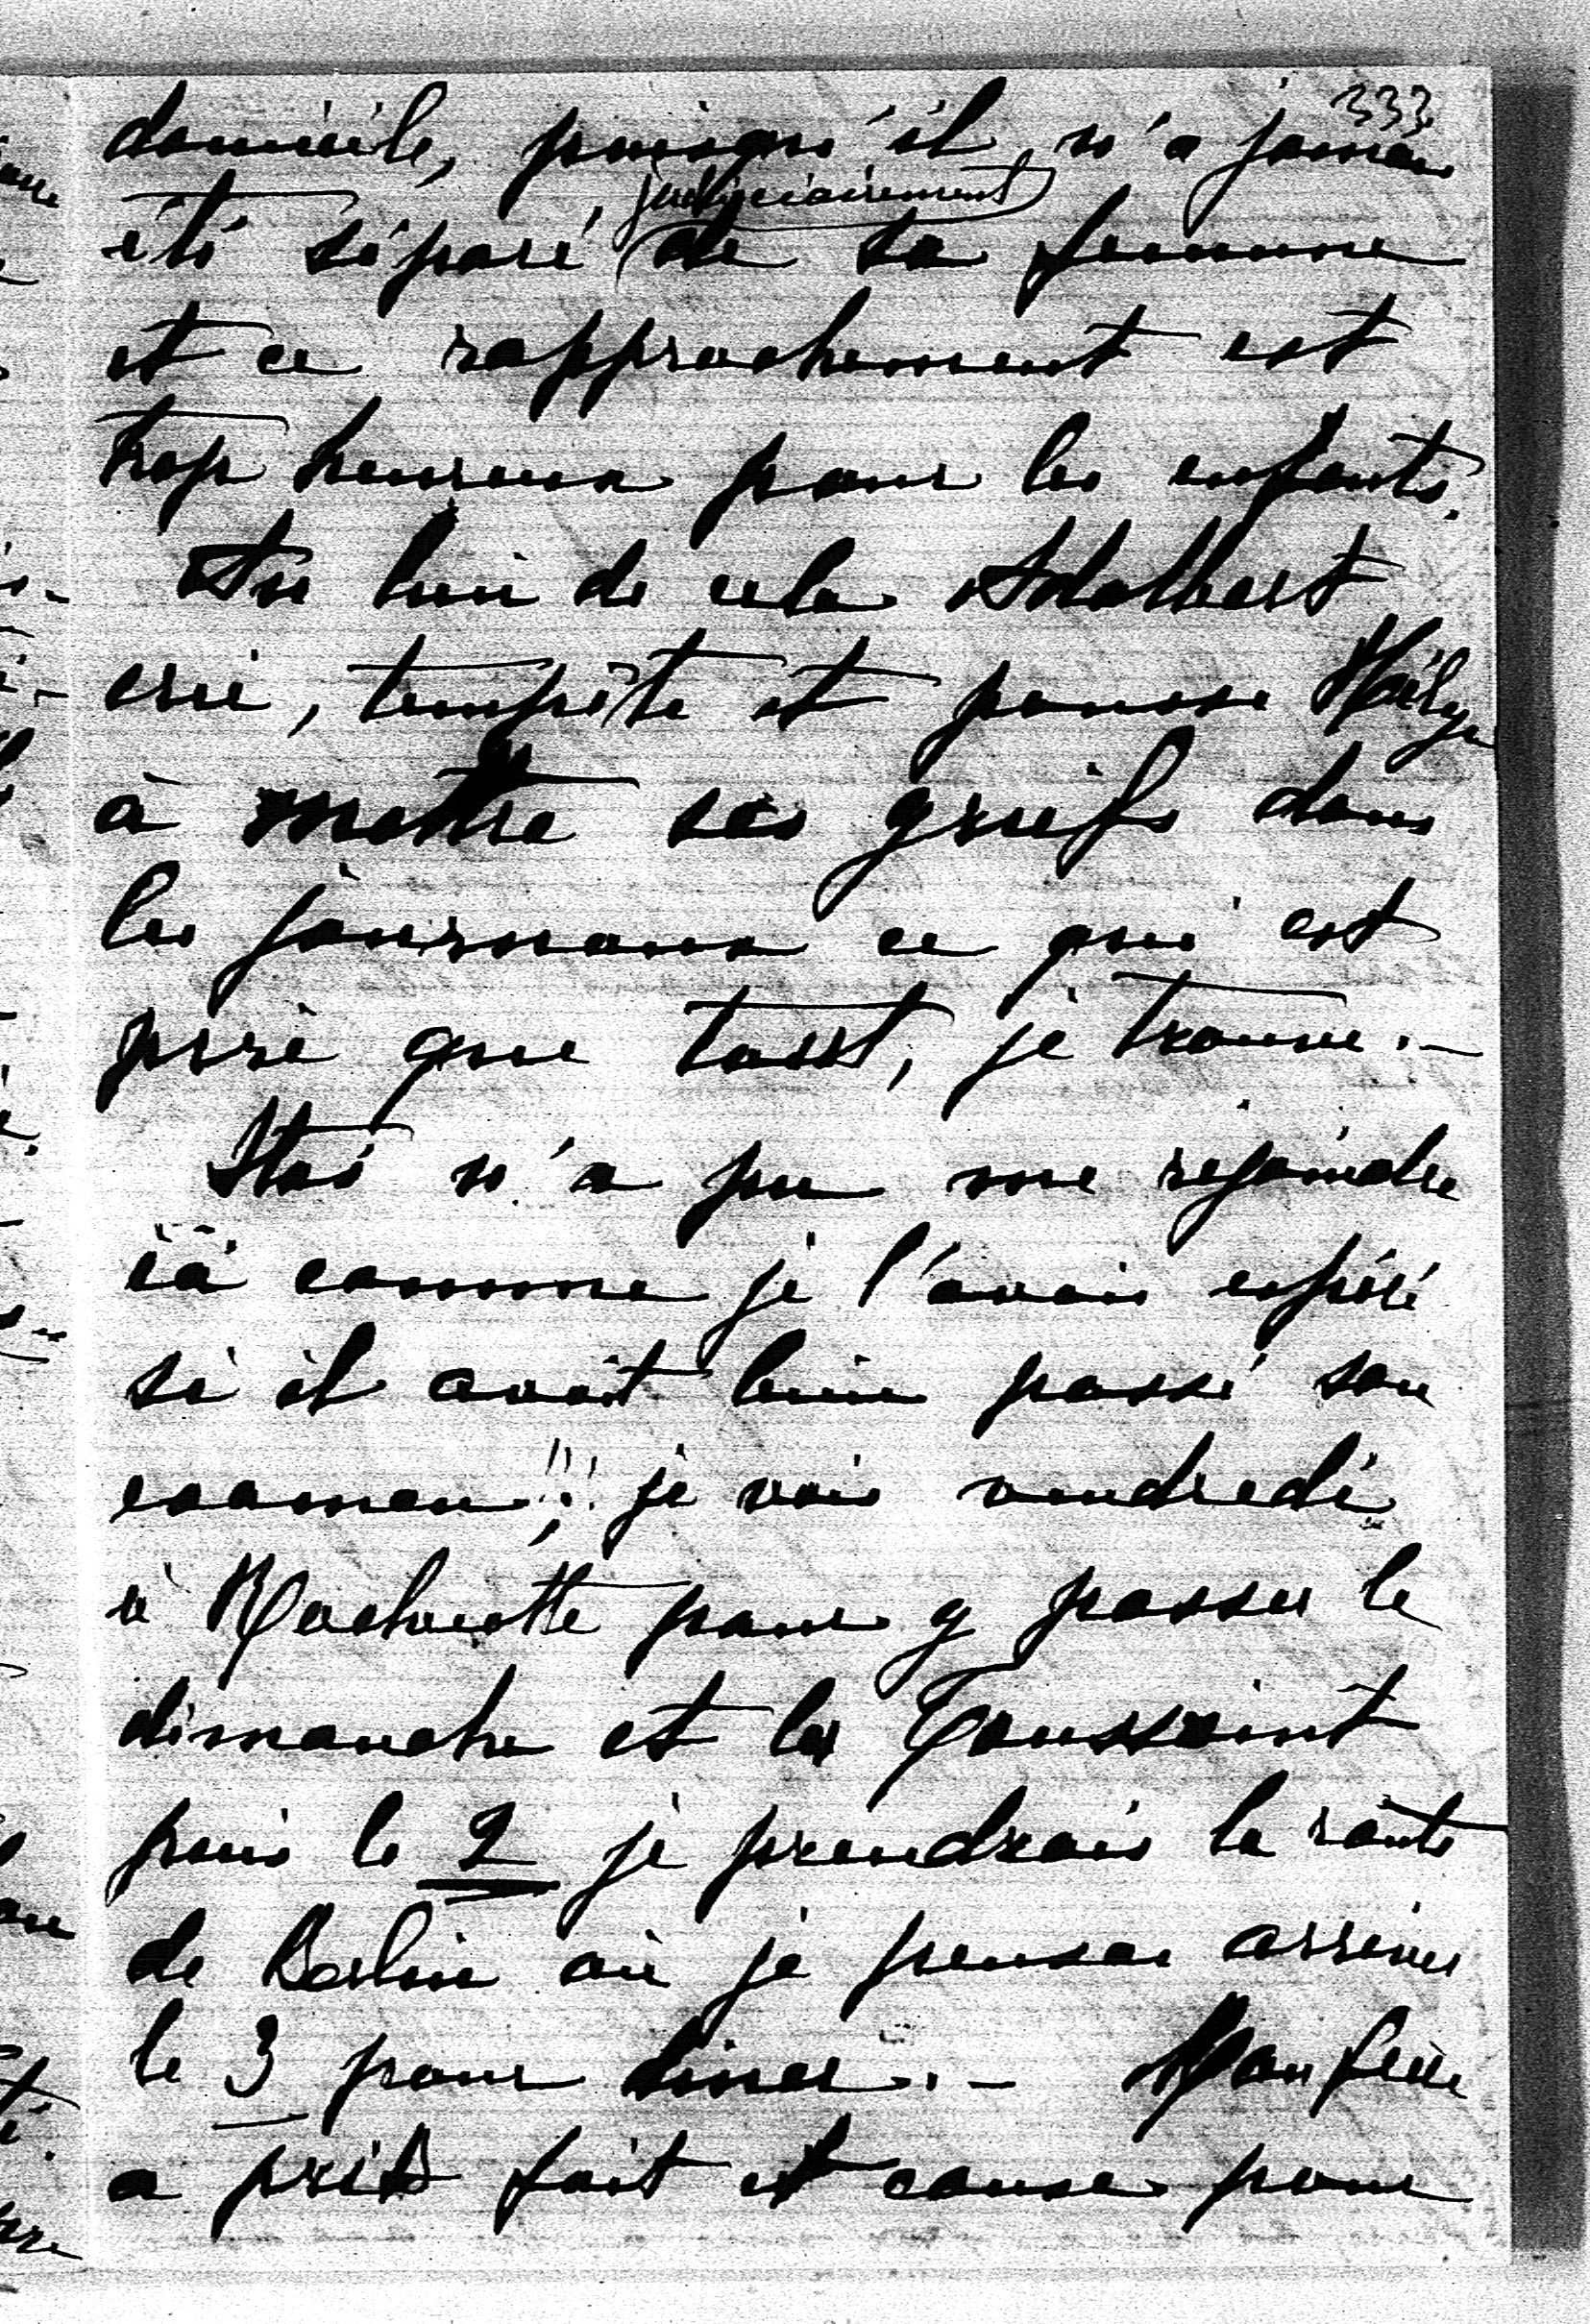 333
domicile, puisqu'il n'a jamais
été séparé judiciairement de sa femme
et ce rapprochement est
trop heureux pour les enfants.
Au lieu de cela Adalbert
crie, tempête et pousse
à mettre ses griefs dans
les journaux ce qui est
pire que tout, je trouve. –
Stas n'a pu me rejoindre
ici comme je l'avais espéré
si il avait bien passé son
examen!!! je vais vendredi
à Rochecotte pour y passer le
dimanche et la Toussaint
puis le 2 je prendrais la route
de Berlin où je pense arriver
le 3 pour diner. – Mon frère
a pris fait et cause pour